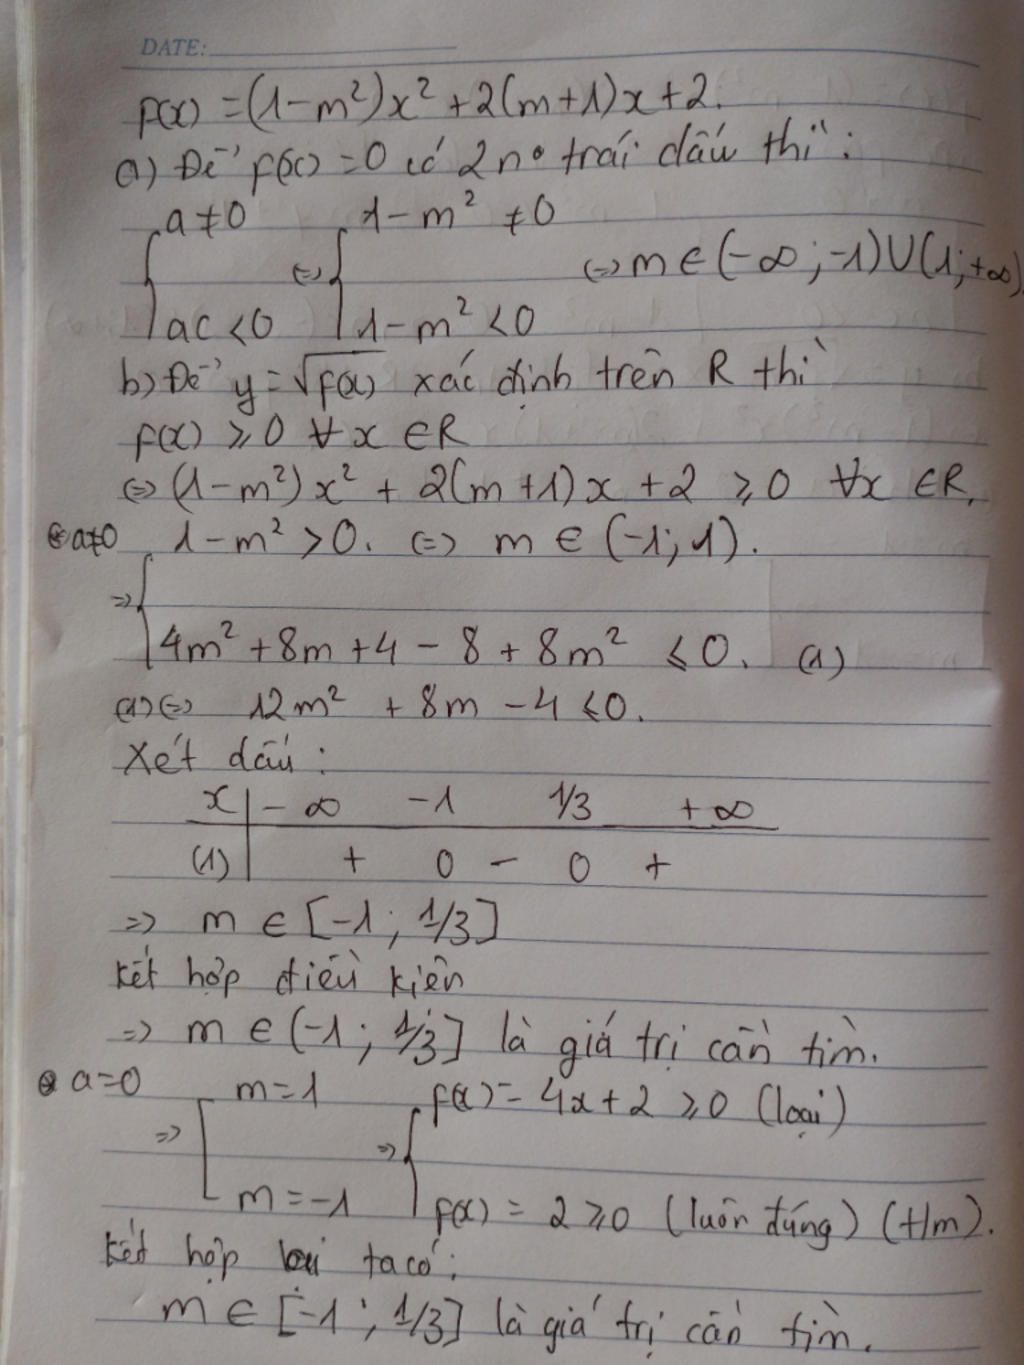 DATE:
f(x) = (1-m²)x² + 2(m+1)x + 2.
a) Để f(x) = 0 có 2 n° trái dấu thì:
{ a ≠ 0 ⇔ { 1-m² ≠ 0 ⇔ m ∈ (-∞; -1) ∪ (1; +∞)
ac < 0 1-m² < 0
b) Để y = √f(x) xác định trên R thì
f(x) ≥ 0 ∀x ∈ R
⇔ (1-m²)x² + 2(m+1)x + 2 ≥ 0 ∀x ∈ R,
* a≠0 1-m² > 0. ⇔ m ∈ (-1; 1).
⇒ {
4m² + 8m + 4 - 8 + 8m² ≤ 0. (1)
(1) ⇔ 12m² + 8m - 4 ≤ 0.
Xét dấu:
x | -∞ -1 1/3 +∞
(1) | + 0 - 0 +
⇒ m ∈ [-1; 1/3]
kết hợp điều kiện
⇒ m ∈ (-1; 1/3] là giá trị cần tìm.
* a=0 ⇒ [ m = 1 ⇒ { f(x) = 4x + 2 ≥ 0 (loại)
m = -1 f(x) = 2 ≥ 0 (luôn đúng) (t/m).
kết hợp lại ta có:
m ∈ [-1; 1/3] là giá trị cần tìm.